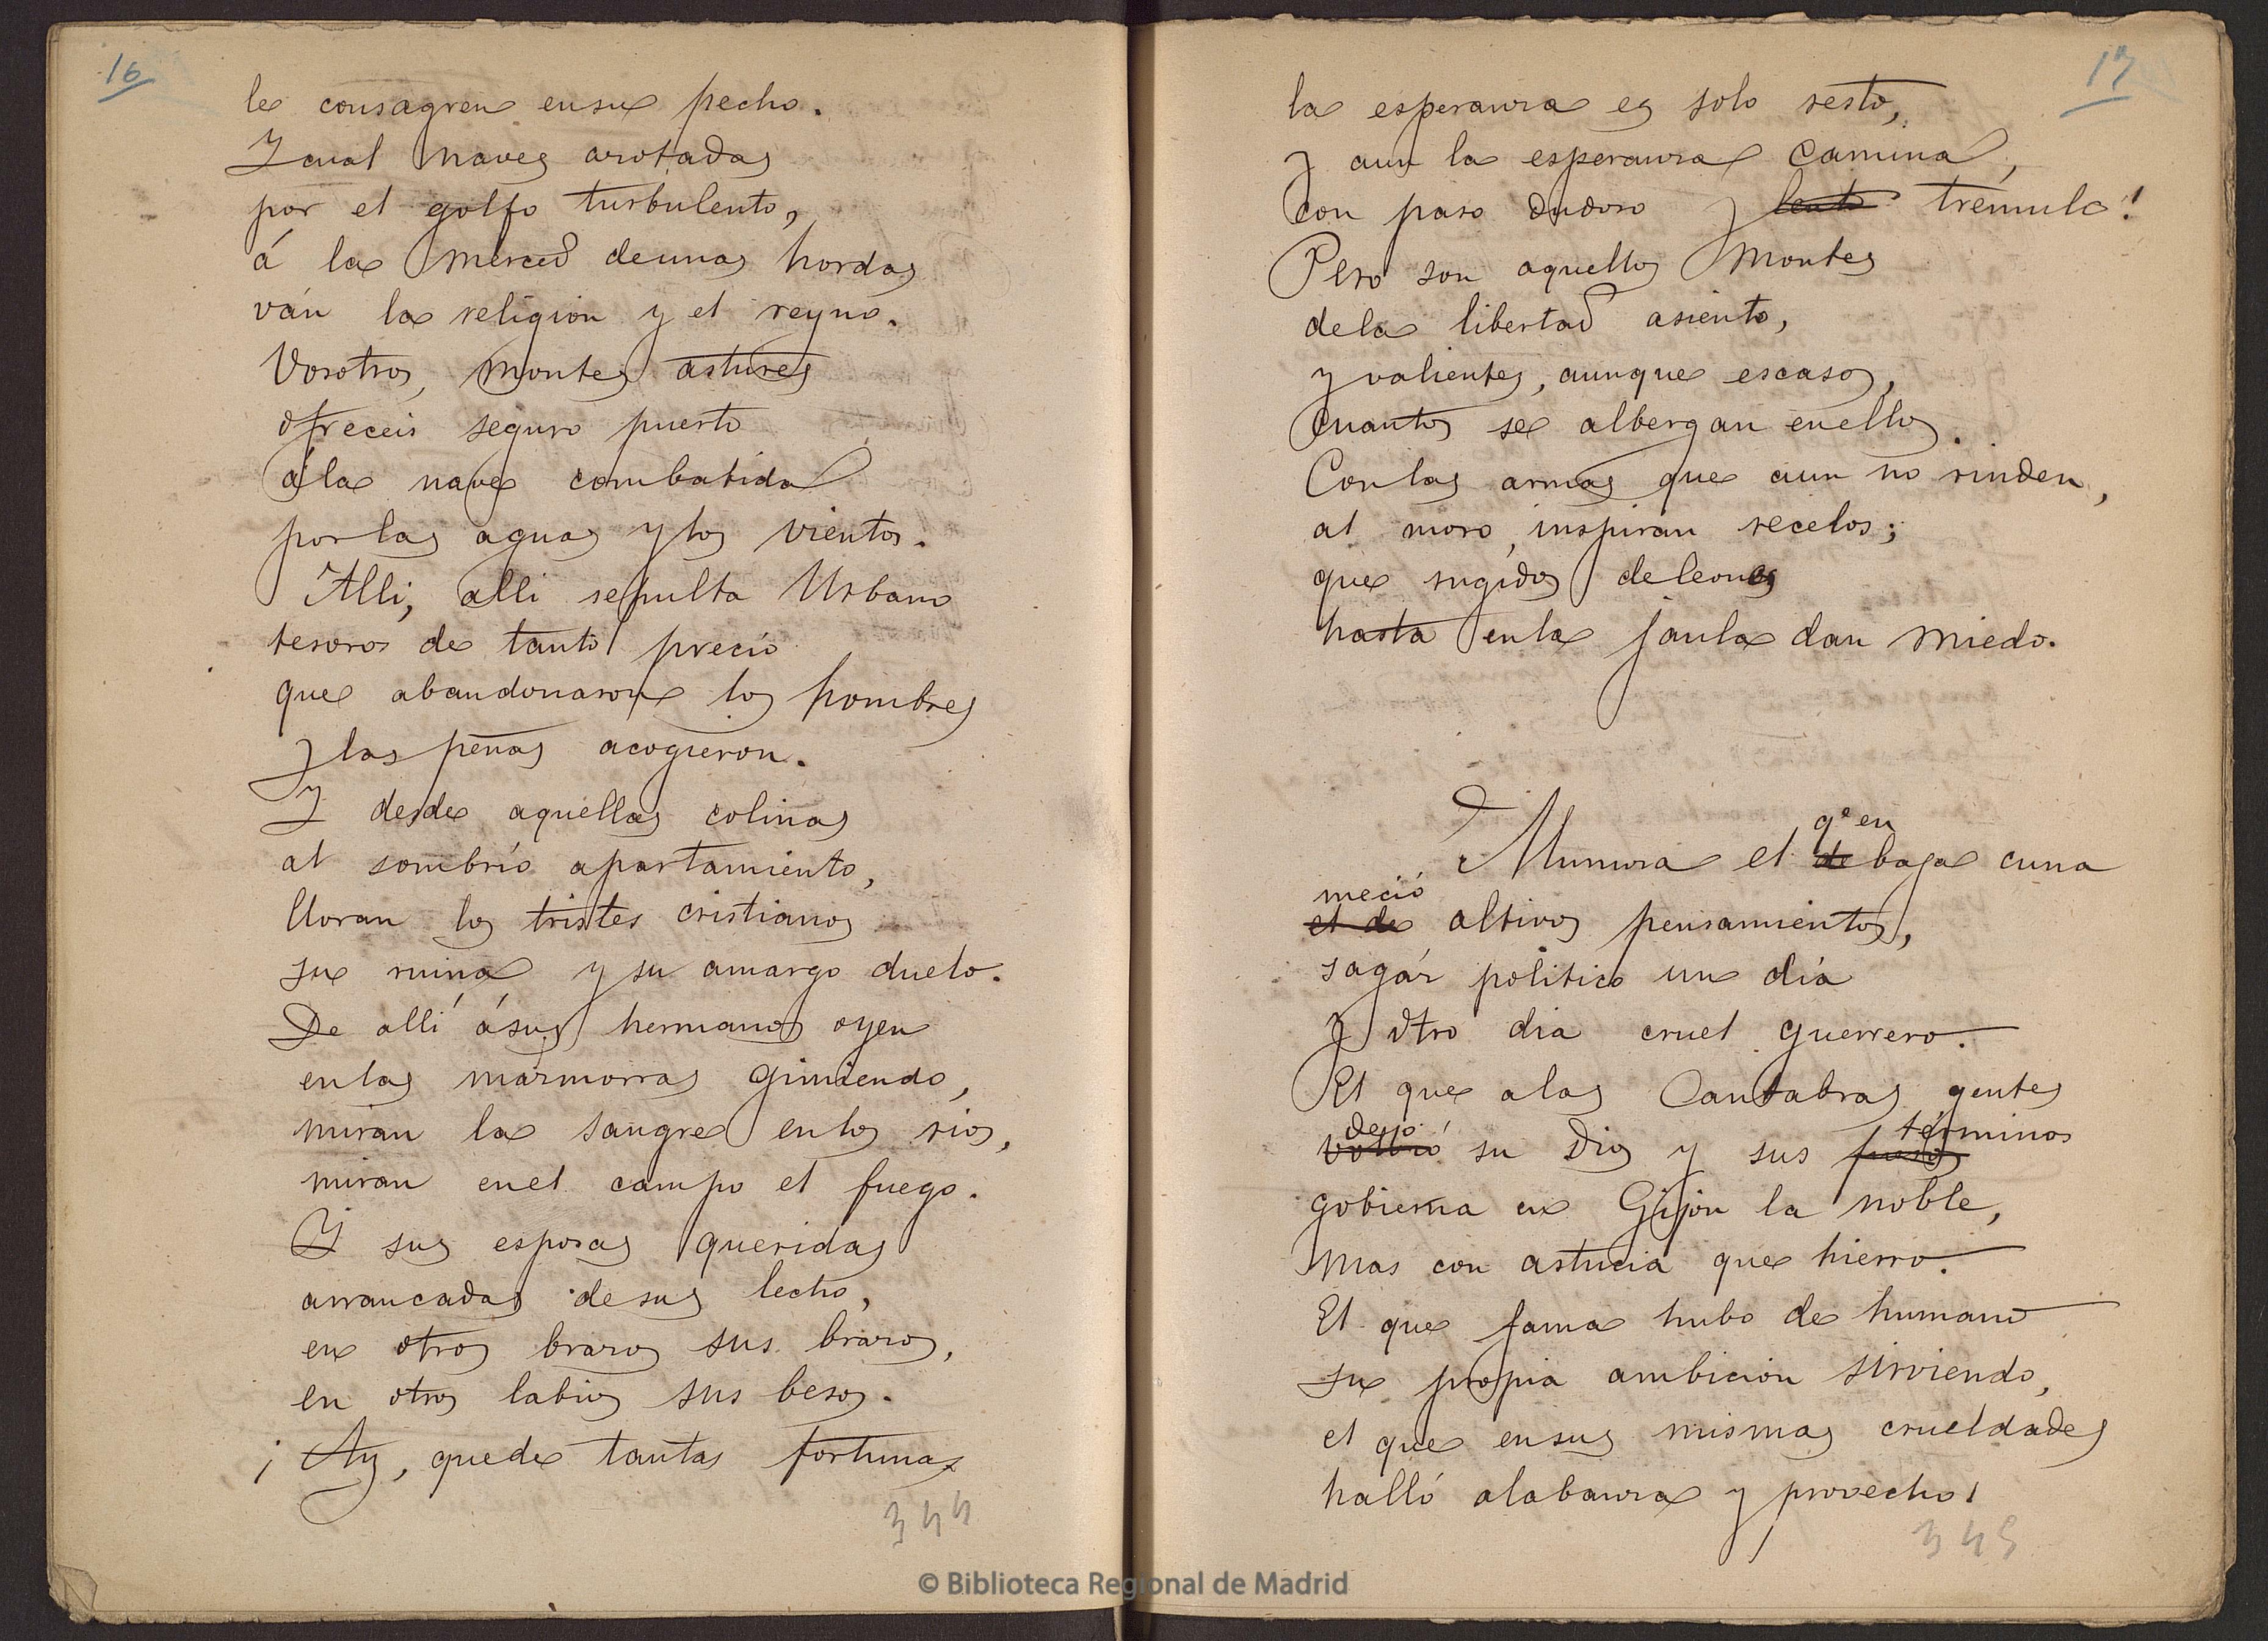 16
le consagren ensu pecho.
Y cual naves azotadas
por el golfo turbulento,
á la merced deunas hordas
ván la religion y el reyno.
Vosotros, montes astures
ofreceis seguro puerto
ála nave combatida
porlas aguas y los vientos.
Alli, alli sepulta Urbano
tesoros de tanto precio
que abandonaron los hombres
y las peñas acogieron.
Y desde aquellas colinas
al sombrío apartamiento,
lloran los tristes cristianos
su ruina y su amargo duelo.
De allí ásus hermanos oyen
enlas mazmorras gimiendo,
miran la sangre enlos rios,
miran enel campo el fuego.
Y sus esposas queridas
arrancadas desus lecho,
en otros brazos sus brazos,
en otros labios sus besos.
¡Ay, quede tantas fortunas
344
17
la esperanza es solo resto,
y aun la esperanza camina,
con paso dudoso y lento trémulo!
Pero son aquellos montes
dela libertad asiento,
y valientes, aunque escasos,
cuantos se albergan enellos.
Conlas armas que aun no rinden,
al moro, inspiran recelos;
que rugidos deleones
hasta enla jaula dan miedo.
qe en
Munuza el de baja cuna
meció
el de altivos pensamientos,
sagáz politico un día
y otro dia cruel guerrero.
El que alas Cantabras gentes
dejó términos
volvió su Dios y sus fueros
gobierna en Gijon la noble,
mas con astucia que hierro.
El que fama hubo de humano
su propia ambicion sirviendo,
el que ensus mismas crueldades
halló alabanza y provecho,
345
© Biblioteca Regional de Madrid